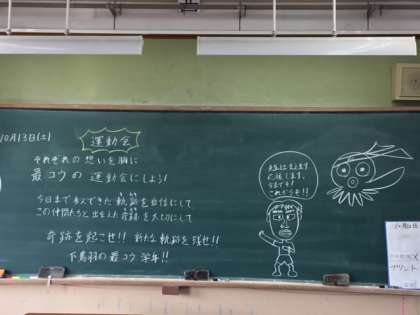 10月13日(土)
運動会
それぞれの 想いを胸に
最コウの 運動会にしよう!
今日まで歩んできた 軌跡を自信にして
この仲間たちと出会えた奇跡を大切にして
奇跡を起こせ!! 新たな軌跡を残せ!!
下鳥羽の最コウ学年!!
応援します。
今までも!
これからも!!
プリント